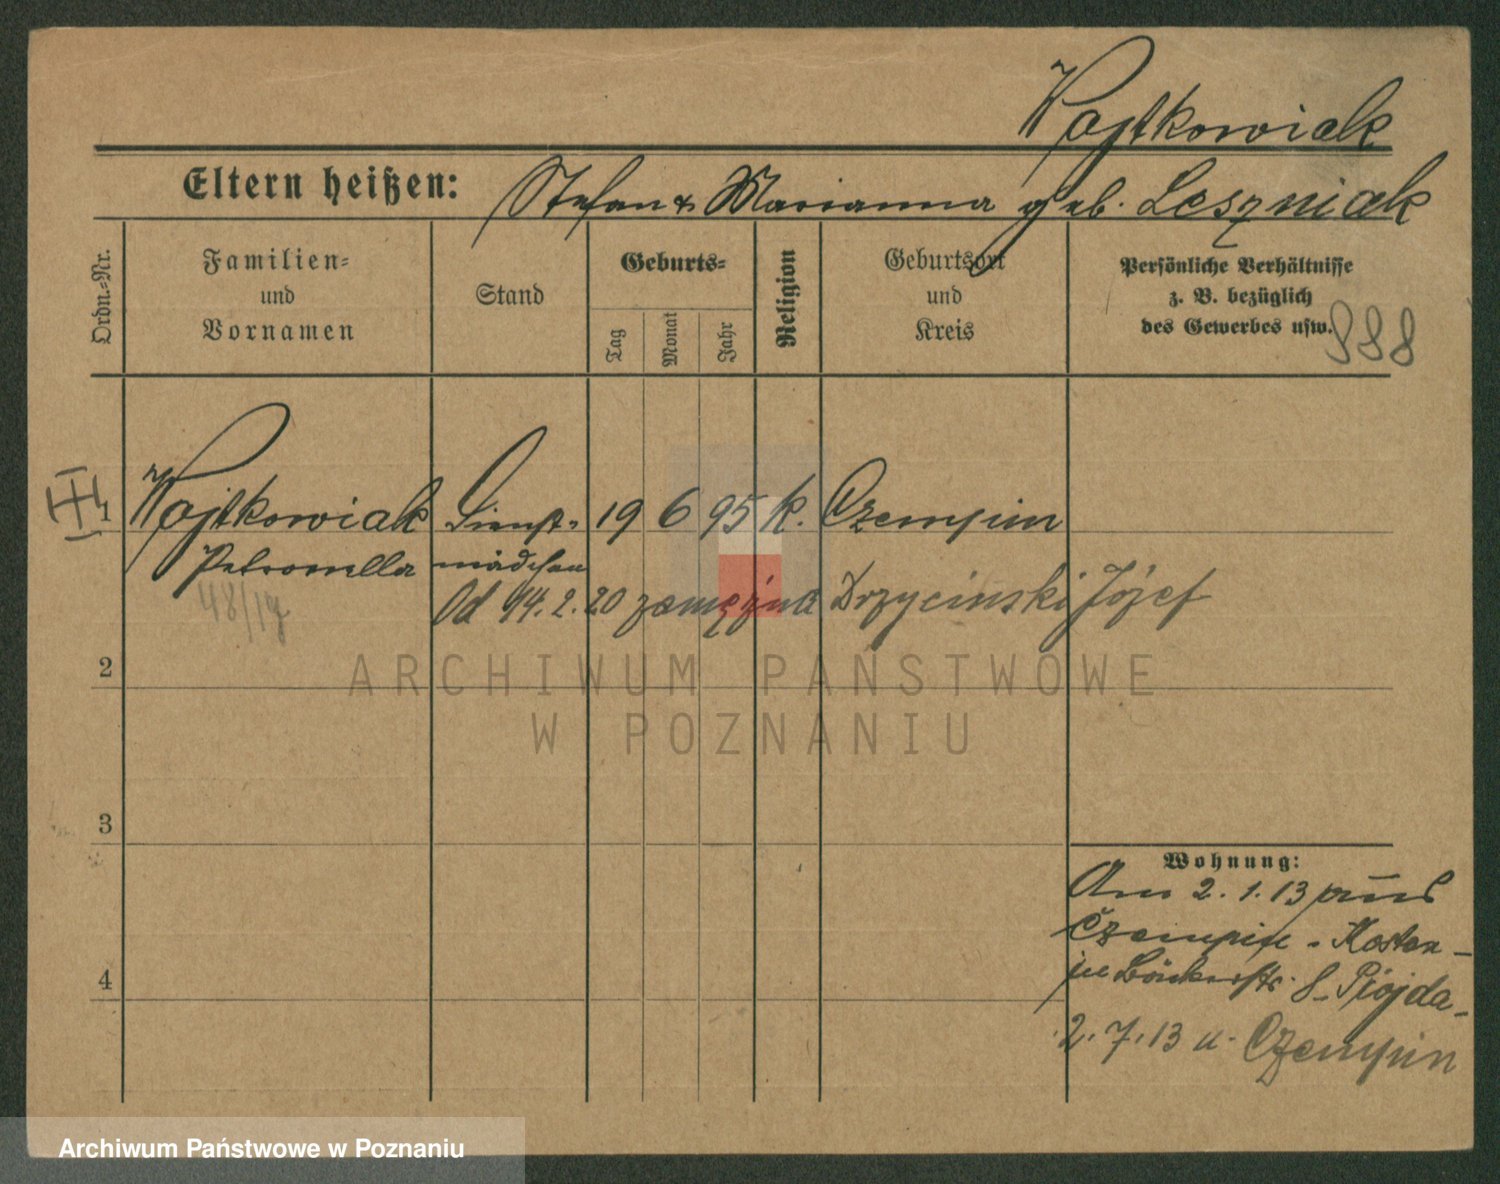 Wojtkowiak
Eltern heißen: Stefan & Marianna geb. Leszniak
Ordn.-Nr.
Familien-
und
Vornamen
Stand
Geburts-
Tag
Monat
Jahr
Religion
Geburtsort
und
Kreis
Persönliche Verhältnisse
z. B. bezüglich
des Gewerbes usw.
988
1 Wojtkowiak Dienst- 19 6 95 k. Czempin
Petronella mädchen
Od 14.2.20 zamężna Drzyciński Józef
48/17
2
ARCHIWUM PAŃSTWOWE
W POZNANIU
3
Wohnung:
Am 2.1.13 aus
Czempin - Kosten -
8 - Piojda -
4
2.7.13 n. Czempin
Archiwum Państwowe w Poznaniu